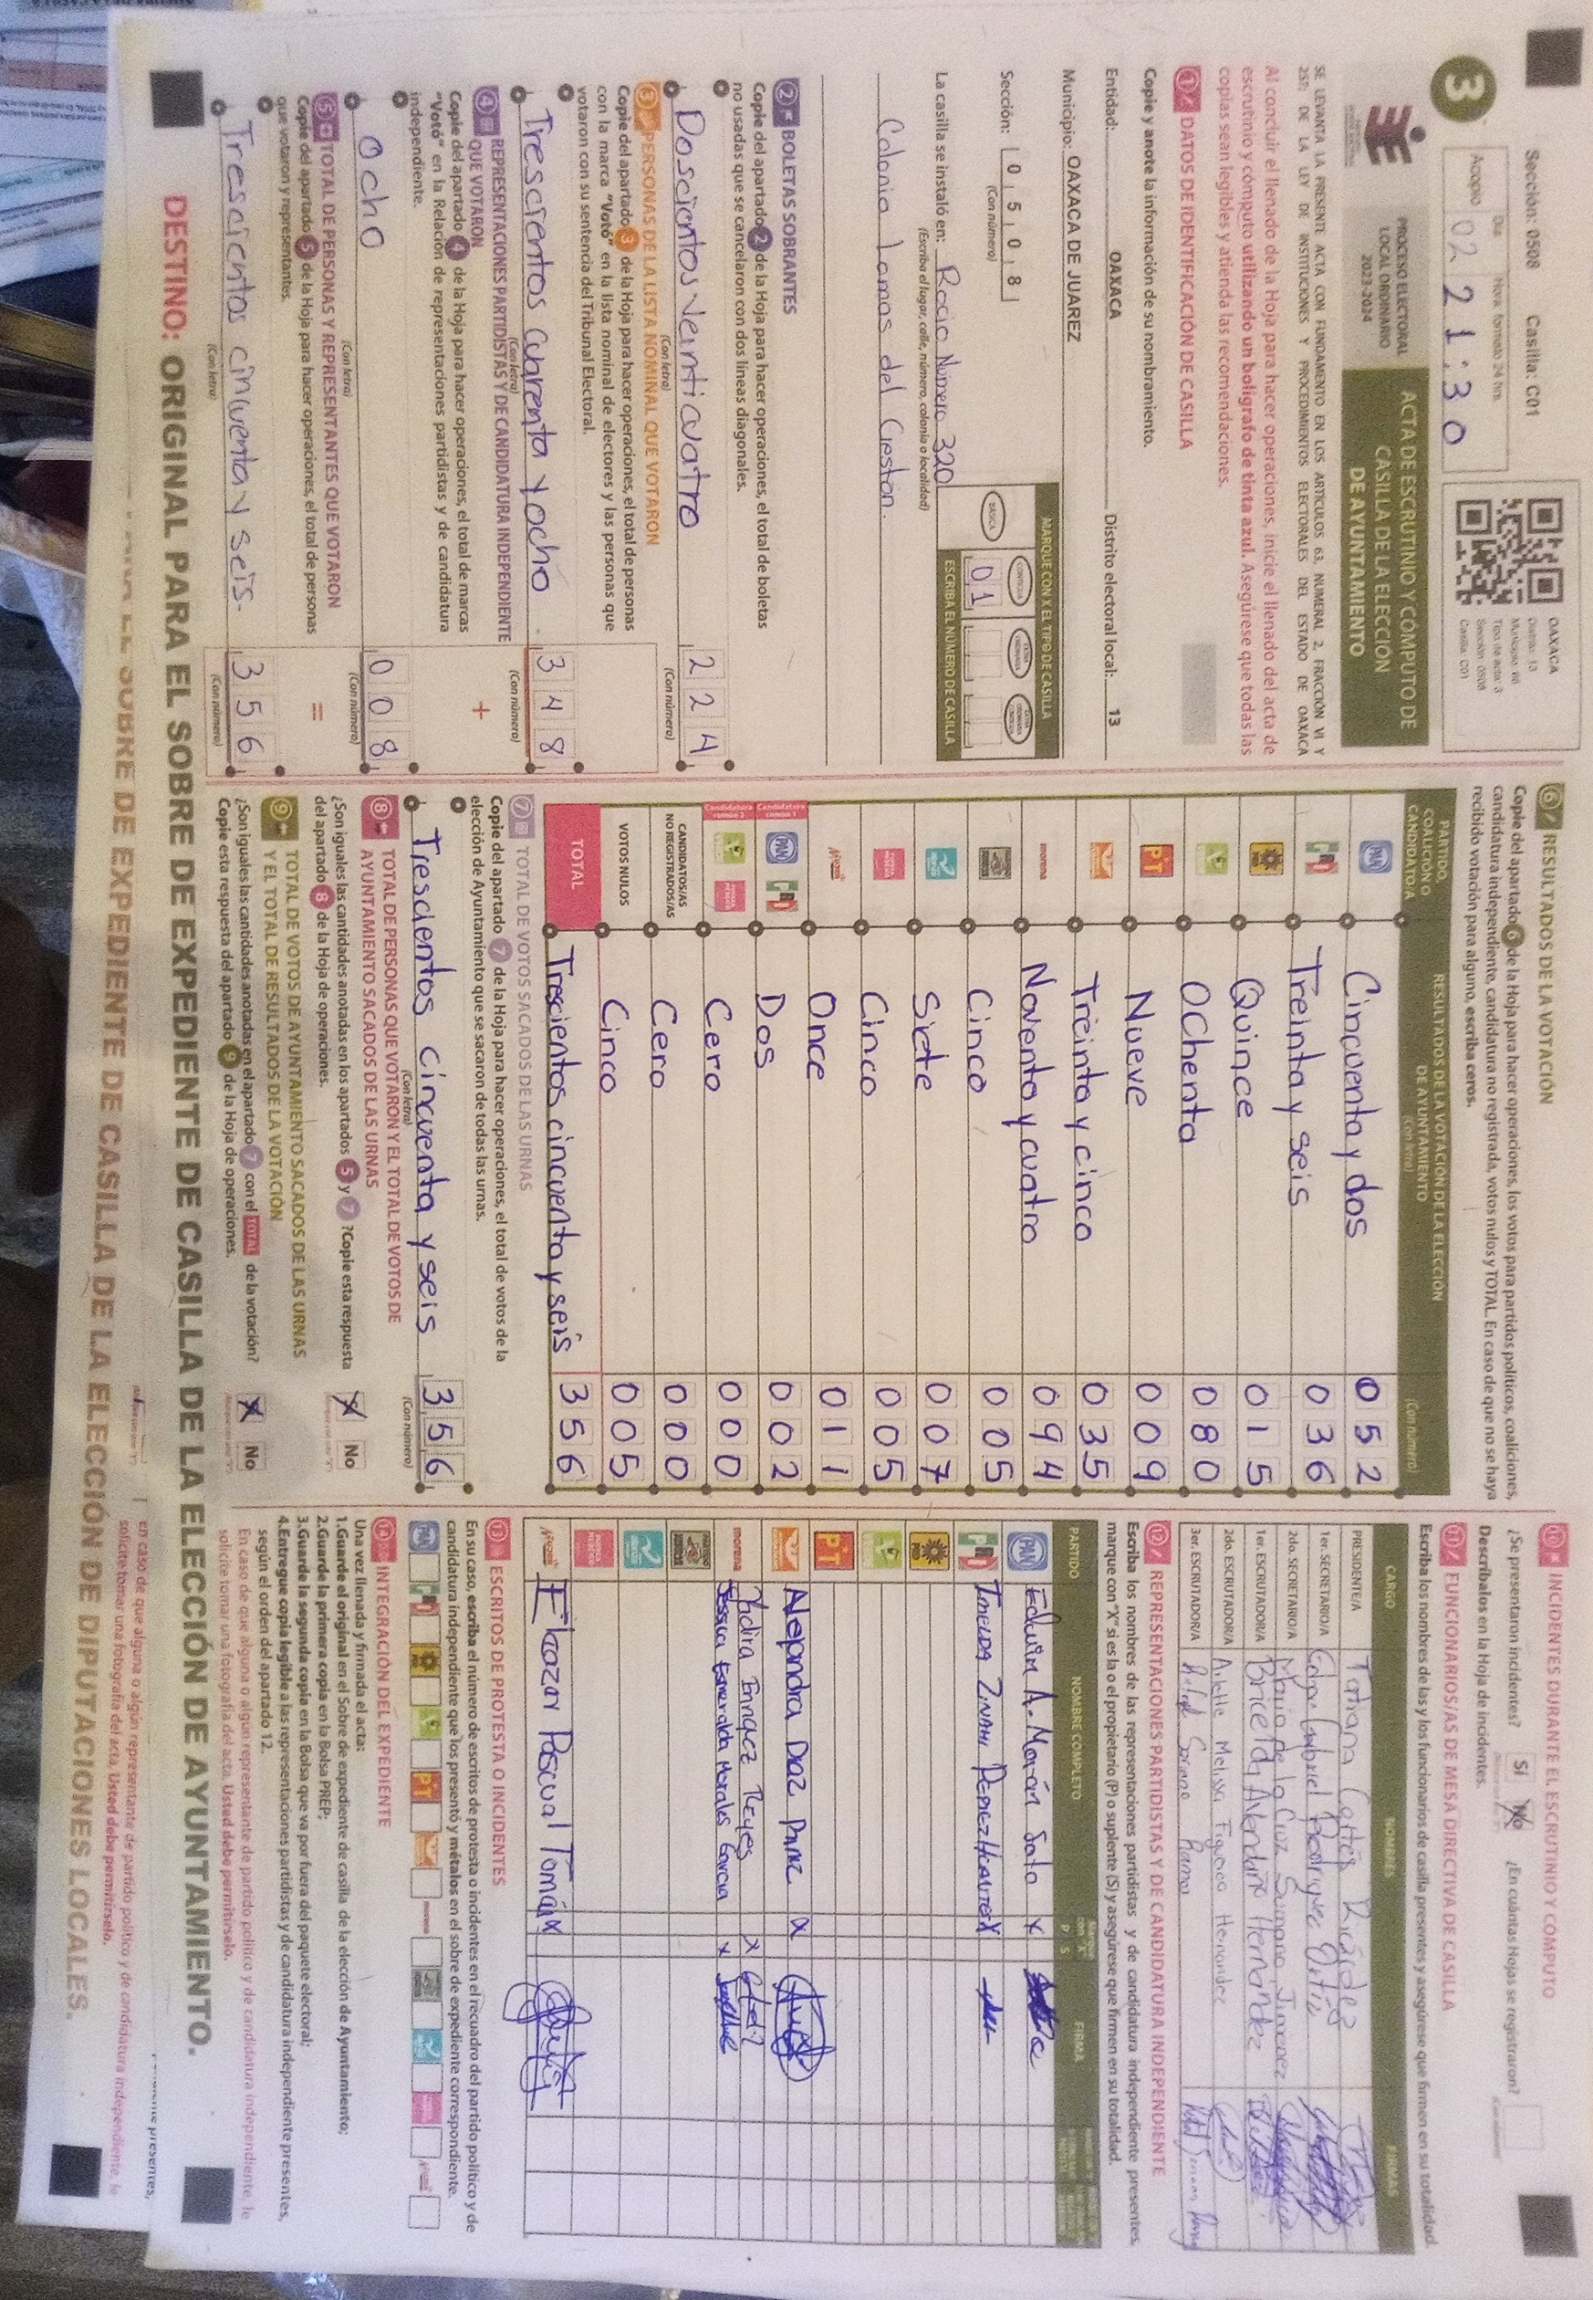 Sección: 0508 Casilla: C01
3
Día Hora: formato 24 hrs.
Acopio 02 21:30
OAXACA
Distrito: 13
Tipo de acta: 3
Sección: 0508
Casilla: C01
PROCESO ELECTORAL
LOCAL ORDINARIO
2023-2024
ACTA DE ESCRUTINIO Y CÓMPUTO DE
CASILLA DE LA ELECCIÓN
DE AYUNTAMIENTO
SE LEVANTA LA PRESENTE ACTA CON FUNDAMENTO EN LOS ARTÍCULOS 63, NUMERAL 2, FRACCIÓN VI Y
257; DE LA LEY DE INSTITUCIONES Y PROCEDIMIENTOS ELECTORALES DEL ESTADO DE OAXACA
Al concluir el llenado de la Hoja para hacer operaciones, inicie el llenado del acta de
escrutinio y cómputo utilizando un bolígrafo de tinta azul. Asegúrese que todas las
copias sean legibles y atienda las recomendaciones.
1 DATOS DE IDENTIFICACIÓN DE CASILLA
Copie y anote la información de su nombramiento.
Entidad: OAXACA Distrito electoral local: 13
Municipio: OAXACA DE JUAREZ
Sección: 0 5 0 8
(Con número)
MARQUE CON X EL TIPO DE CASILLA
BÁSICA CONTIGUA
ESCRIBA EL NÚMERO DE CASILLA
01
La casilla se instaló en: Rocio Número 320
(Escriba el lugar, calle, número, colonia o localidad)
Colonia Lomas del Creston.
2 BOLETAS SOBRANTES
Copie del apartado 2 de la Hoja para hacer operaciones, el total de boletas
no usadas que se cancelaron con dos líneas diagonales.
Doscientos veinticuatro 224
(Con letra) (Con número)
3 PERSONAS DE LA LISTA NOMINAL QUE VOTARON
Copie del apartado 3 de la Hoja para hacer operaciones, el total de personas
con la marca "Votó" en la lista nominal de electores y las personas que
votaron con su sentencia del Tribunal Electoral.
Trescientos cuarenta y ocho 348
(Con letra) (Con número)
4 REPRESENTACIONES PARTIDISTAS Y DE CANDIDATURA INDEPENDIENTE
QUE VOTARON
Copie del apartado 4 de la Hoja para hacer operaciones, el total de marcas
"Votó" en la Relación de representaciones partidistas y de candidatura
independiente.
+
Ocho 008
(Con letra) (Con número)
5 TOTAL DE PERSONAS Y REPRESENTANTES QUE VOTARON
Copie del apartado 5 de la Hoja para hacer operaciones, el total de personas
que votaron y representantes.
=
Trescientos cincuenta y seis. 356
(Con letra) (Con número)
6 RESULTADOS DE LA VOTACIÓN
Copie del apartado 6 de la Hoja para hacer operaciones, los votos para partidos políticos, coaliciones,
candidatura independiente, candidatura no registrada, votos nulos y TOTAL. En caso de que no se haya
recibido votación para alguno, escriba ceros.
PARTIDO, COALICIÓN O CANDIDATO/A
RESULTADOS DE LA VOTACIÓN DE LA ELECCIÓN DE AYUNTAMIENTO
(Con letra) (Con número)
PAN Cincuenta y dos 052
PRI Treinta y seis 036
PRD Quince 015
Ochenta 080
PT Nueve 009
Treinta y cinco 035
morena Noventa y cuatro 094
Cinco 005
Siete 007
Cinco 005
Once 011
Candidatura común 1 PAN PRI Dos 002
Candidatura común 2 Cero 000
CANDIDATOS/AS NO REGISTRADOS/AS Cero 000
VOTOS NULOS Cinco 005
TOTAL Trescientos cincuenta y seis 356
7 TOTAL DE VOTOS SACADOS DE LAS URNAS
Copie del apartado 7 de la Hoja para hacer operaciones, el total de votos de la
elección de Ayuntamiento que se sacaron de todas las urnas.
Trescientos cincuenta y seis 356
(Con letra) (Con número)
8 TOTAL DE PERSONAS QUE VOTARON Y EL TOTAL DE VOTOS DE
AYUNTAMIENTO SACADOS DE LAS URNAS
¿Son iguales las cantidades anotadas en los apartados 5 y 7 ?Copie esta respuesta
del apartado 8 de la Hoja de operaciones.
X No
9 TOTAL DE VOTOS DE AYUNTAMIENTO SACADOS DE LAS URNAS
Y EL TOTAL DE RESULTADOS DE LA VOTACIÓN
¿Son iguales las cantidades anotadas en el apartado 7 con el TOTAL de la votación?
Copie esta respuesta del apartado 9 de la Hoja de operaciones.
X No
10 INCIDENTES DURANTE EL ESCRUTINIO Y CÓMPUTO
¿Se presentaron incidentes? Sí No ¿En cuántas Hojas se registraron?
Descríbalos en la Hoja de incidentes.
11 FUNCIONARIOS/AS DE MESA DIRECTIVA DE CASILLA
Escriba los nombres de las y los funcionarios de casilla presentes y asegúrese que firmen en su totalidad.
CARGO NOMBRES FIRMAS
PRESIDENTE/A Tatiana Cortés
1er. SECRETARIO/A Gabriel Rodriguez Ortiz
2do. SECRETARIO/A Maria de la Cruz Jimenez
1er. ESCRUTADOR/A Bricelda Avendaño Hernandez
2do. ESCRUTADOR/A Arlette Melissa Figueroa Hernandez
3er. ESCRUTADOR/A Rafael Soriano Ramos
12 REPRESENTACIONES PARTIDISTAS Y DE CANDIDATURA INDEPENDIENTE
Escriba los nombres de las representaciones partidistas y de candidatura independiente presentes,
marque con "X" si es la o el propietario (P) o suplente (S) y asegúrese que firmen en su totalidad.
PARTIDO NOMBRE COMPLETO P S FIRMA
PAN Edwin A. Morán Soto X
PRI X
PRD
PT
Alejandra Diaz X
morena Yadira Enriquez Reyes X
Jessica Esmeralda Morales Garcia X
Eleazar Pascual Tomás X
13 ESCRITOS DE PROTESTA O INCIDENTES
En su caso, escriba el número de escritos de protesta o incidentes en el recuadro del partido político y de
candidatura independiente que los presentó y métalos en el sobre de expediente correspondiente.
PAN PRI PRD PT morena
14 INTEGRACIÓN DEL EXPEDIENTE
Una vez llenada y firmada el acta:
1.Guarde el original en el Sobre de expediente de casilla de la elección de Ayuntamiento;
2.Guarde la primera copia en la Bolsa PREP;
3.Guarde la segunda copia en la Bolsa que va por fuera del paquete electoral;
4.Entregue copia legible a las representaciones partidistas y de candidatura independiente presentes,
según el orden del apartado 12.
En caso de que alguna o algún representante de partido político y de candidatura independiente, le
solicite tomar una fotografía del acta, Usted debe permitírselo.
DESTINO: ORIGINAL PARA EL SOBRE DE EXPEDIENTE DE CASILLA DE LA ELECCIÓN DE AYUNTAMIENTO.
presentes,
en caso de que alguna o algún representante de partido político y de candidatura independiente, le
solicite tomar una fotografía del acta, Usted debe permitírselo.
SOBRE DE EXPEDIENTE DE CASILLA DE LA ELECCIÓN DE DIPUTACIONES LOCALES.